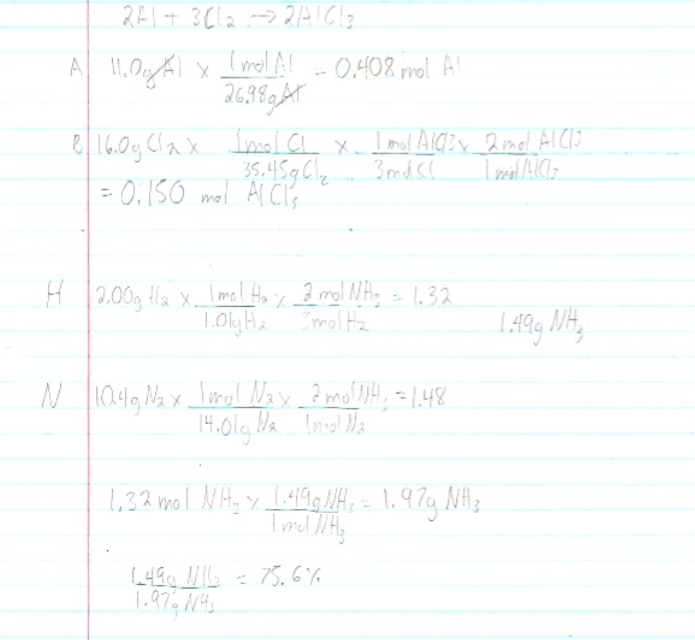 2Al + 3Cl2 → 2AlCl3
A 11.0g Al x 1 mol Al / 26.98g Al = 0.408 mol Al
B 16.0g Cl2 x 1 mol Cl / 35.45g Cl2 x 1 mol AlCl3 / 3 mol Cl x 2 mol AlCl3 / 1 mol AlCl3
= 0.150 mol AlCl3
H 2.00g H2 x 1 mol H2 / 1.01g H2 x 2 mol NH3 / 3 mol H2 = 1.32
1.49g NH3
N 10.4g N2 x 1 mol N2 / 14.01g N2 x 2 mol NH3 / 1 mol N2 = 1.48
1.32 mol NH3 x 1.49g NH3 / 1 mol NH3 = 1.97g NH3
1.49g NH3 / 1.97g NH3 = 75.6%